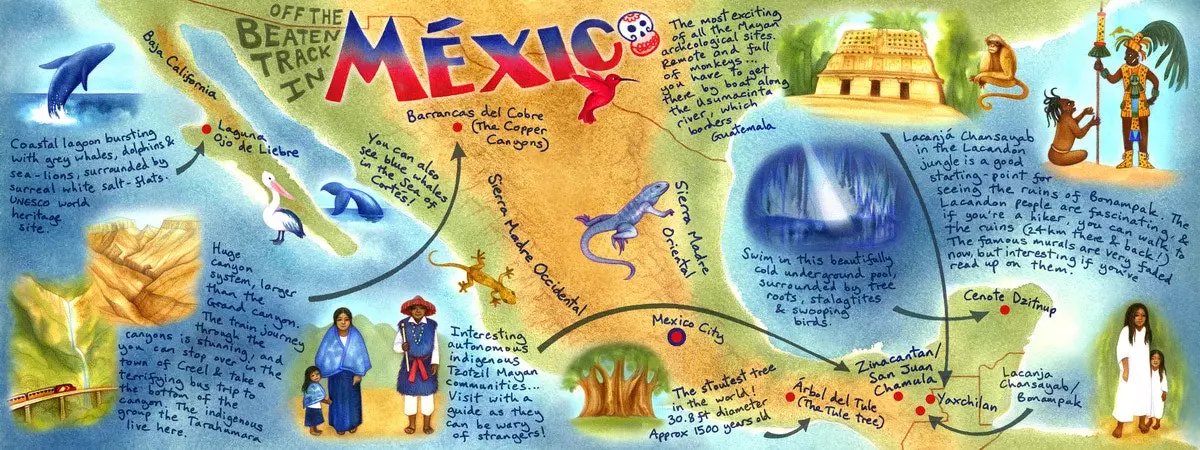 OFF THE
BEATEN
TRACK
IN
MÉXICO
Baja California
Coastal lagoon bursting
with grey whales, dolphins &
sea-lions, surrounded by
surreal white salt-flats.
UNESCO world
heritage
site.
Laguna
Ojo de Liebre
Barrancas del Cobre
(The Copper
Canyons)
You can also
see blue whales
in the Sea of
Cortés!
The most exciting
of all the Mayan
archeological sites.
Remote and full
of monkeys...
you have to get
there by boat along
the Usumacinta
river, which
borders
Guatemala
Lacanjá Chansayab
in the Lacandon
jungle is a good
starting-point for
seeing the ruins of Bonampak. The
Lacandon people are fascinating, &
if you're a hiker, you can walk to
the ruins (24km there & back!)
The famous murals are very faded
now, but interesting if you've
read up on them.
Sierra Madre Occidental
Sierra Madre
Oriental
Huge
canyon
system, larger
than the
Grand canyon.
The train journey
through the
canyons is stunning, and
you can stop over in the
town of Creel & take a
terrifying bus trip to
the bottom of the
canyon. The indigenous
group the Tarahumara
live here.
Interesting
autonomous
indigenous
Tzotzil Mayan
communities...
Visit with a
guide as they
can be wary
of strangers!
Mexico City
Swim in this beautifully
cold underground pool,
surrounded by tree
roots, stalagtites
& swooping
birds.
Cenote Dzitnup
The stoutest tree
in the world!
30.8 ft diameter
Approx 1500 years old
Árbol del Tule
(The Tule Tree)
Zinacantan/
San Juan
Chamula
Yaxchilan
Lacanja
Chansayab/
Bonampak